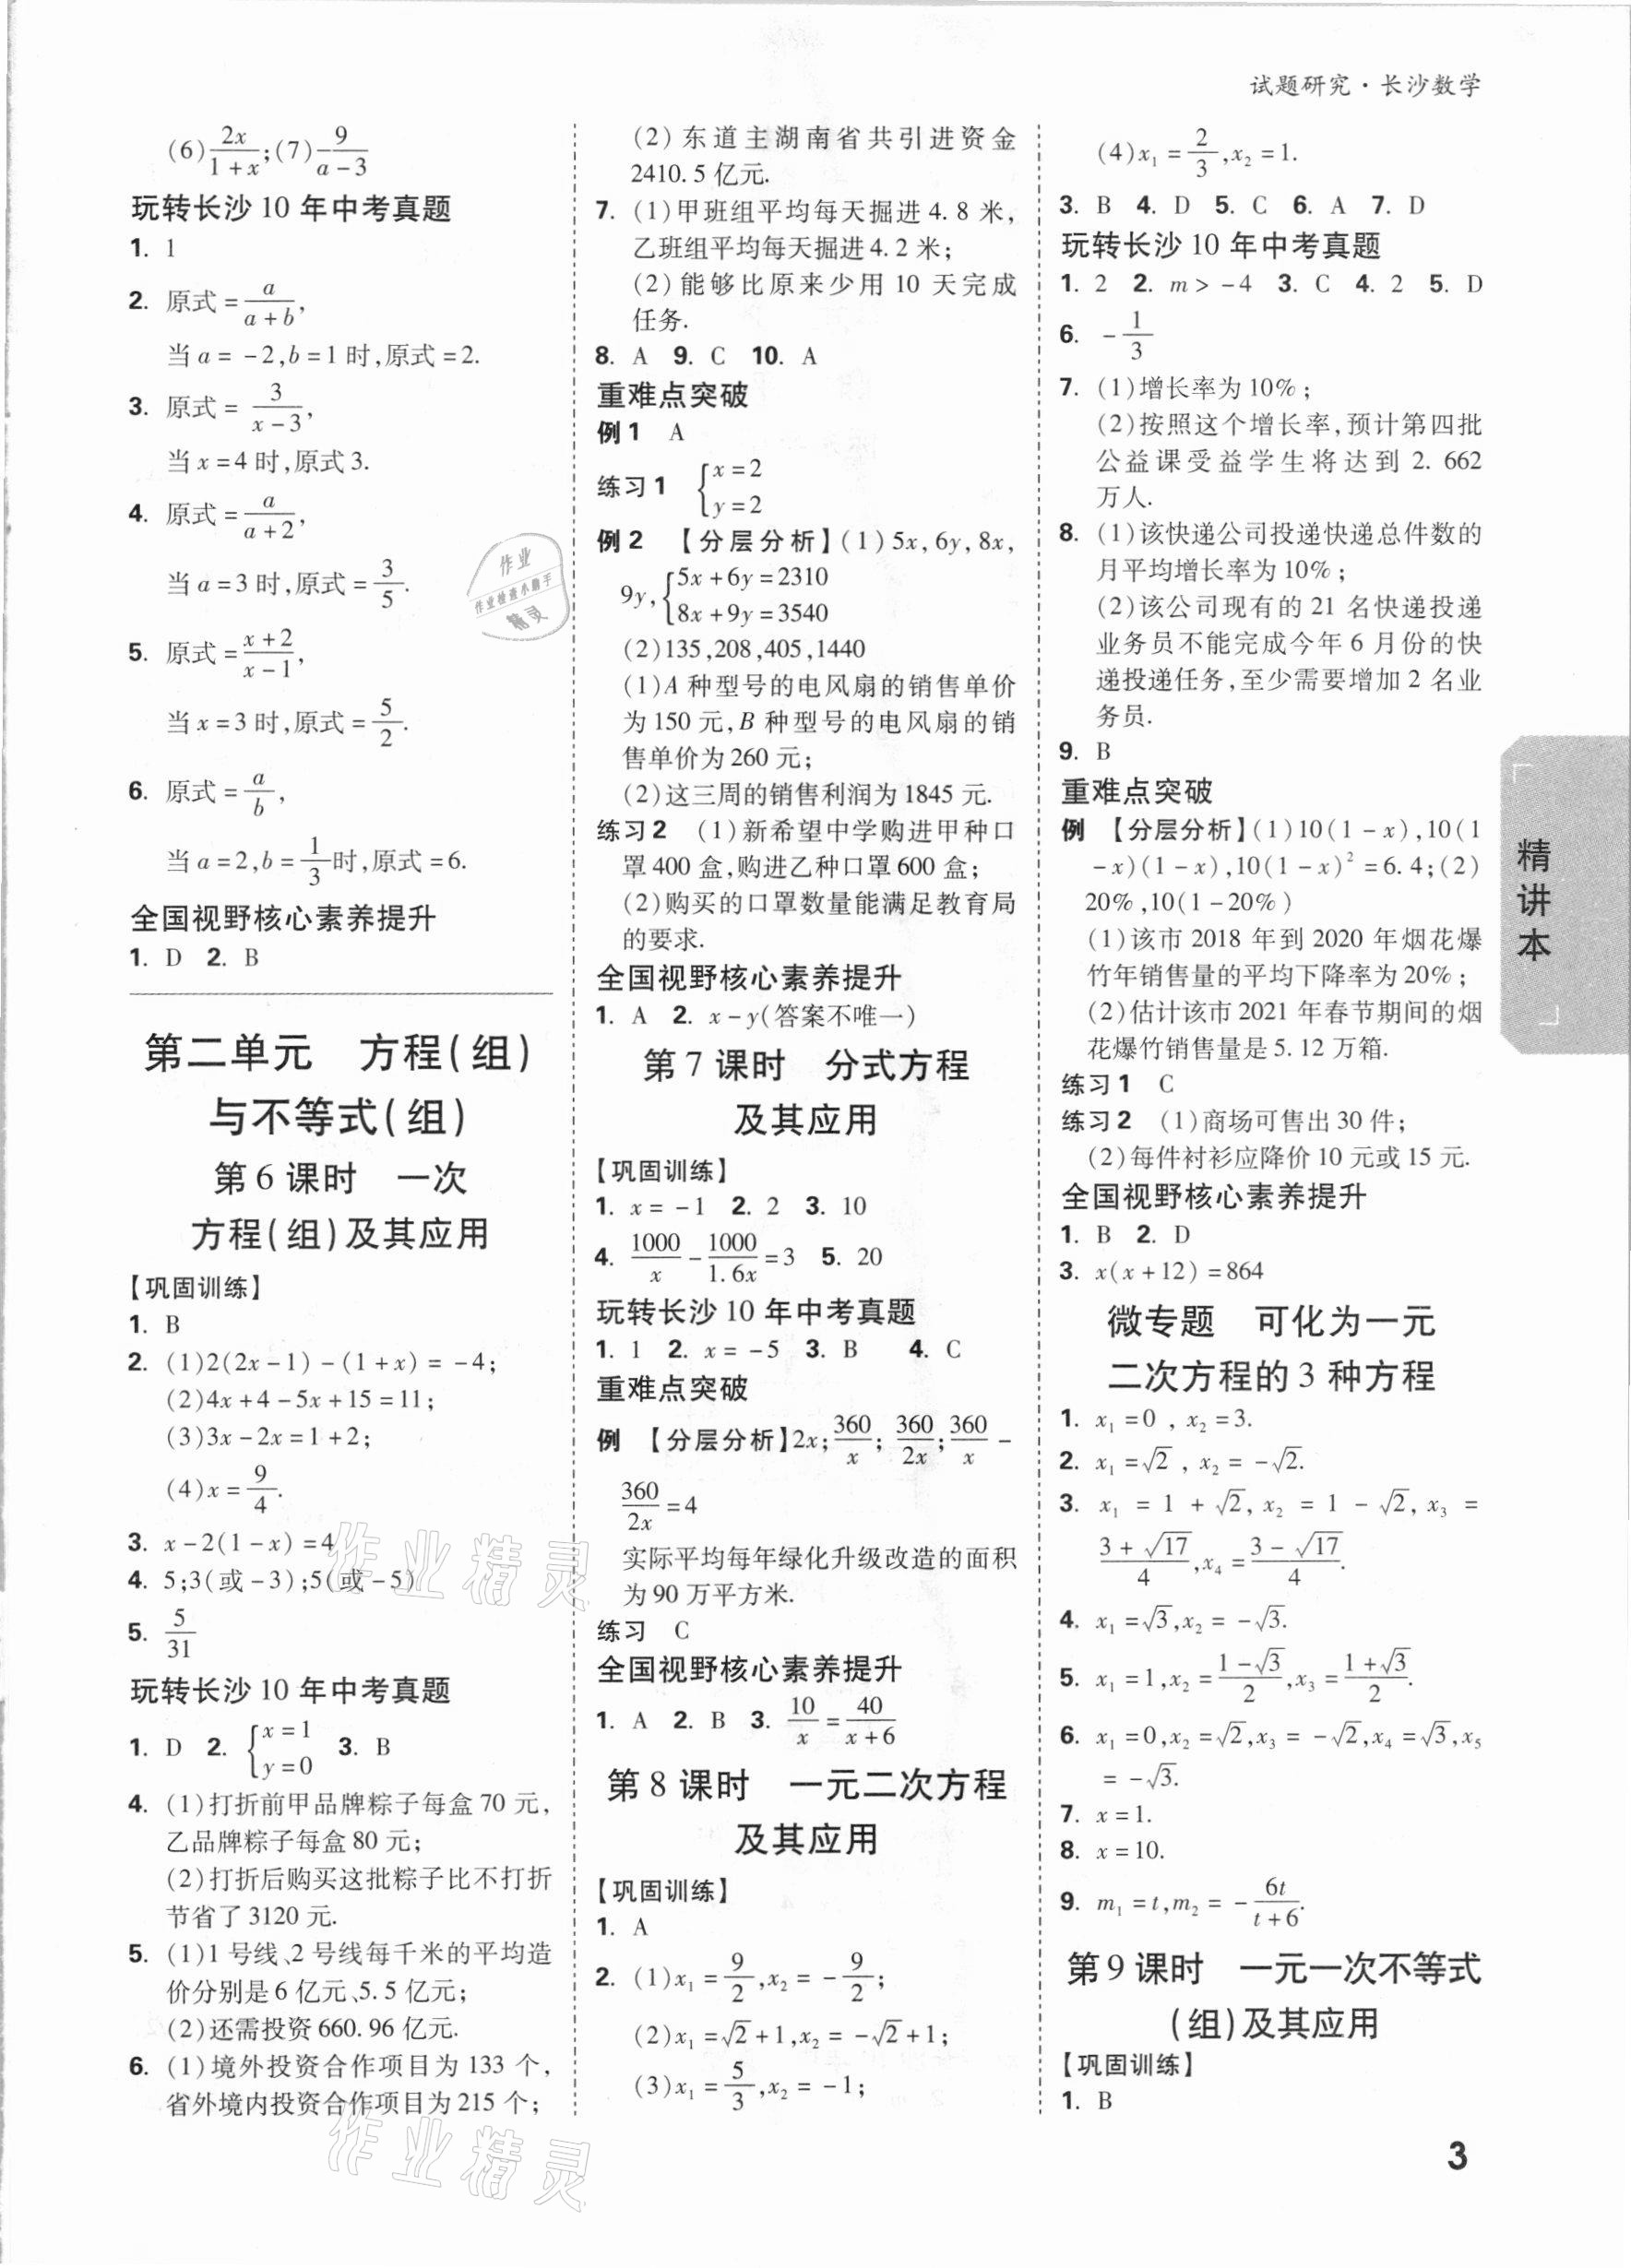 试题研究·长沙数学
(6)2x/(1+x);(7)9/(a-3)
玩转长沙10年中考真题
1. 1
2. 原式=a/(a+b),
当a=-2,b=1时,原式=2.
3. 原式=3/(x-3),
当x=4时,原式3.
4. 原式=a/(a+2),
当a=3时,原式=3/5.
5. 原式=(x+2)/(x-1),
当x=3时,原式=5/2.
6. 原式=a/b,
当a=2,b=1/3时,原式=6.
全国视野核心素养提升
1. D 2. B
第二单元 方程(组)
与不等式(组)
第6课时 一次
方程(组)及其应用
【巩固训练】
1. B
2. (1)2(2x-1)-(1+x)=-4;
(2)4x+4-5x+15=11;
(3)3x-2x=1+2;
(4)x=9/4.
3. x-2(1-x)=4
4. 5;3(或-3);5(或-5)
5. 5/31
玩转长沙10年中考真题
1. D 2. {x=1
y=0 3. B
4. (1)打折前甲品牌粽子每盒70元,
乙品牌粽子每盒80元;
(2)打折后购买这批粽子比不打折
节省了3120元.
5. (1)1号线、2号线每千米的平均造
价分别是6亿元、5.5亿元;
(2)还需投资660.96亿元.
6. (1)境外投资合作项目为133个,
省外境内投资合作项目为215个;
(2)东道主湖南省共引进资金
2410.5亿元.
7. (1)甲班组平均每天掘进4.8米,
乙班组平均每天掘进4.2米;
(2)能够比原来少用10天完成
任务.
8. A 9. C 10. A
重难点突破
例1 A
练习1 {x=2
y=2
例2 【分层分析】(1)5x,6y,8x,
9y,{5x+6y=2310
8x+9y=3540
(2)135,208,405,1440
(1)A种型号的电风扇的销售单价
为150元,B种型号的电风扇的销
售单价为260元;
(2)这三周的销售利润为1845元.
练习2 (1)新希望中学购进甲种口
罩400盒,购进乙种口罩600盒;
(2)购买的口罩数量能满足教育局
的要求.
全国视野核心素养提升
1. A 2. x-y(答案不唯一)
第7课时 分式方程
及其应用
【巩固训练】
1. x=-1 2. 2 3. 10
4. 1000/x-1000/1.6x=3 5. 20
玩转长沙10年中考真题
1. 1 2. x=-5 3. B 4. C
重难点突破
例 【分层分析】2x;360/x;360/2x;360/x-
360/2x=4
实际平均每年绿化升级改造的面积
为90万平方米.
练习 C
全国视野核心素养提升
1. A 2. B 3. 10/x=40/(x+6)
第8课时 一元二次方程
及其应用
【巩固训练】
1. A
2. (1)x₁=9/2,x₂=-9/2;
(2)x₁=√2+1,x₂=-√2+1;
(3)x₁=5/3,x₂=-1;
(4)x₁=2/3,x₂=1.
3. B 4. D 5. C 6. A 7. D
玩转长沙10年中考真题
1. 2 2. m>-4 3. C 4. 2 5. D
6. -1/3
7. (1)增长率为10%;
(2)按照这个增长率,预计第四批
公益课受益学生将达到2.662
万人.
8. (1)该快递公司投递快递总件数的
月平均增长率为10%;
(2)该公司现有的21名快递投递
业务员不能完成今年6月份的快
递投递任务,至少需要增加2名业
务员.
9. B
重难点突破
例 【分层分析】(1)10(1-x),10(1
-x)(1-x),10(1-x)²=6.4;(2)
20%,10(1-20%)
(1)该市2018年到2020年烟花爆
竹年销售量的平均下降率为20%;
(2)估计该市2021年春节期间的烟
花爆竹销售量是5.12万箱.
练习1 C
练习2 (1)商场可售出30件;
(2)每件衬衫应降价10元或15元.
全国视野核心素养提升
1. B 2. D
3. x(x+12)=864
微专题 可化为一元
二次方程的3种方程
1. x₁=0,x₂=3.
2. x₁=√2,x₂=-√2.
3. x₁=1+√2,x₂=1-√2,x₃=
(3+√17)/4,x₄=(3-√17)/4.
4. x₁=√3,x₂=-√3.
5. x₁=1,x₂=(1-√3)/2,x₃=(1+√3)/2.
6. x₁=0,x₂=√2,x₃=-√2,x₄=√3,x₅
=-√3.
7. x=1.
8. x=10.
9. m₁=t,m₂=-6t/(t+6).
第9课时 一元一次不等式
(组)及其应用
【巩固训练】
1. B
精讲本
3
作业
作业检查小助手
精灵
作业精灵
作业精灵